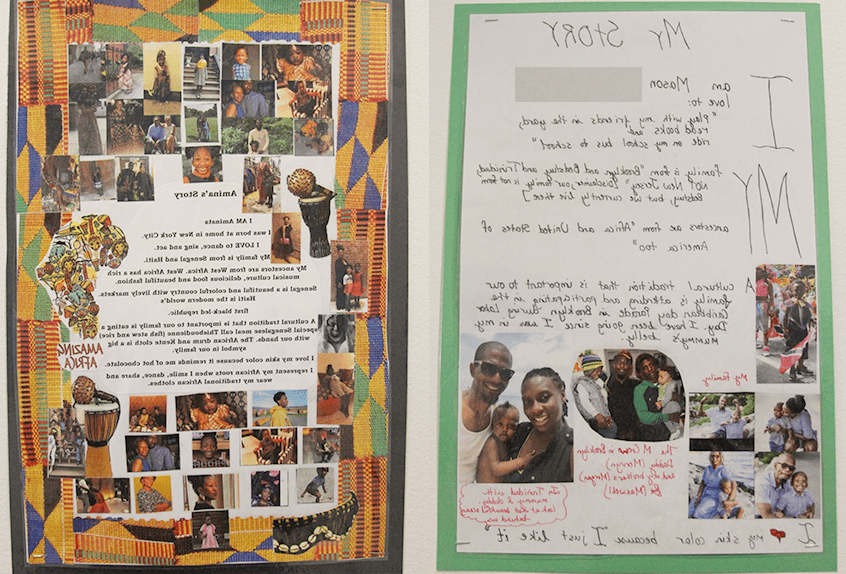 Amina's Story
I AM Aminata
I was born at home in New York City.
I LOVE to dance, sing and act.
My family is from Senegal and Haiti.
My ancestors are from West Africa. West Africa has a rich
musical culture, delicious food and beautiful fashion.
Senegal is a beautiful and colourful country with lively markets.
Haiti is the modern world's
first black-led republic.
A cultural tradition that is important to our family is eating a
special Senegalese meal call Thieboudienne (fish stew and rice)
with our hands. The African drum and Kente cloth is a big
symbol in our family.
I love my skin color because it reminds me of hot chocolate.
I represent my African roots when I smile, dance, share and
wear my traditional African clothes.
AMAZING
AFRICA
My STORY
I am Mason
love to:
"play with my friends in the yard,
read books and
ride on my school bus to school"
MY family is from "Brooklyn and Bedstuy and Trinidad,
NOT New Jersey" [Disclaimer your family is not from
Bedstuy, but we currently live there]
ancestors are from "Africa and United States of
America too"
A cultural tradition that is important to our
family is attending and participating in the
Caribbean day Parade in Brooklyn during Labor
Day. I have been going since I was in my
mummy's belly.
My family
The M Crew in Brooklyn
Daddy (Mervyn)
and my brothers (Morgan)
(Maxwell)
In Trinidad with
mummy & daddy
Look at that beautiful ocean
behind us
I ❤ my skin color because "I just like it"